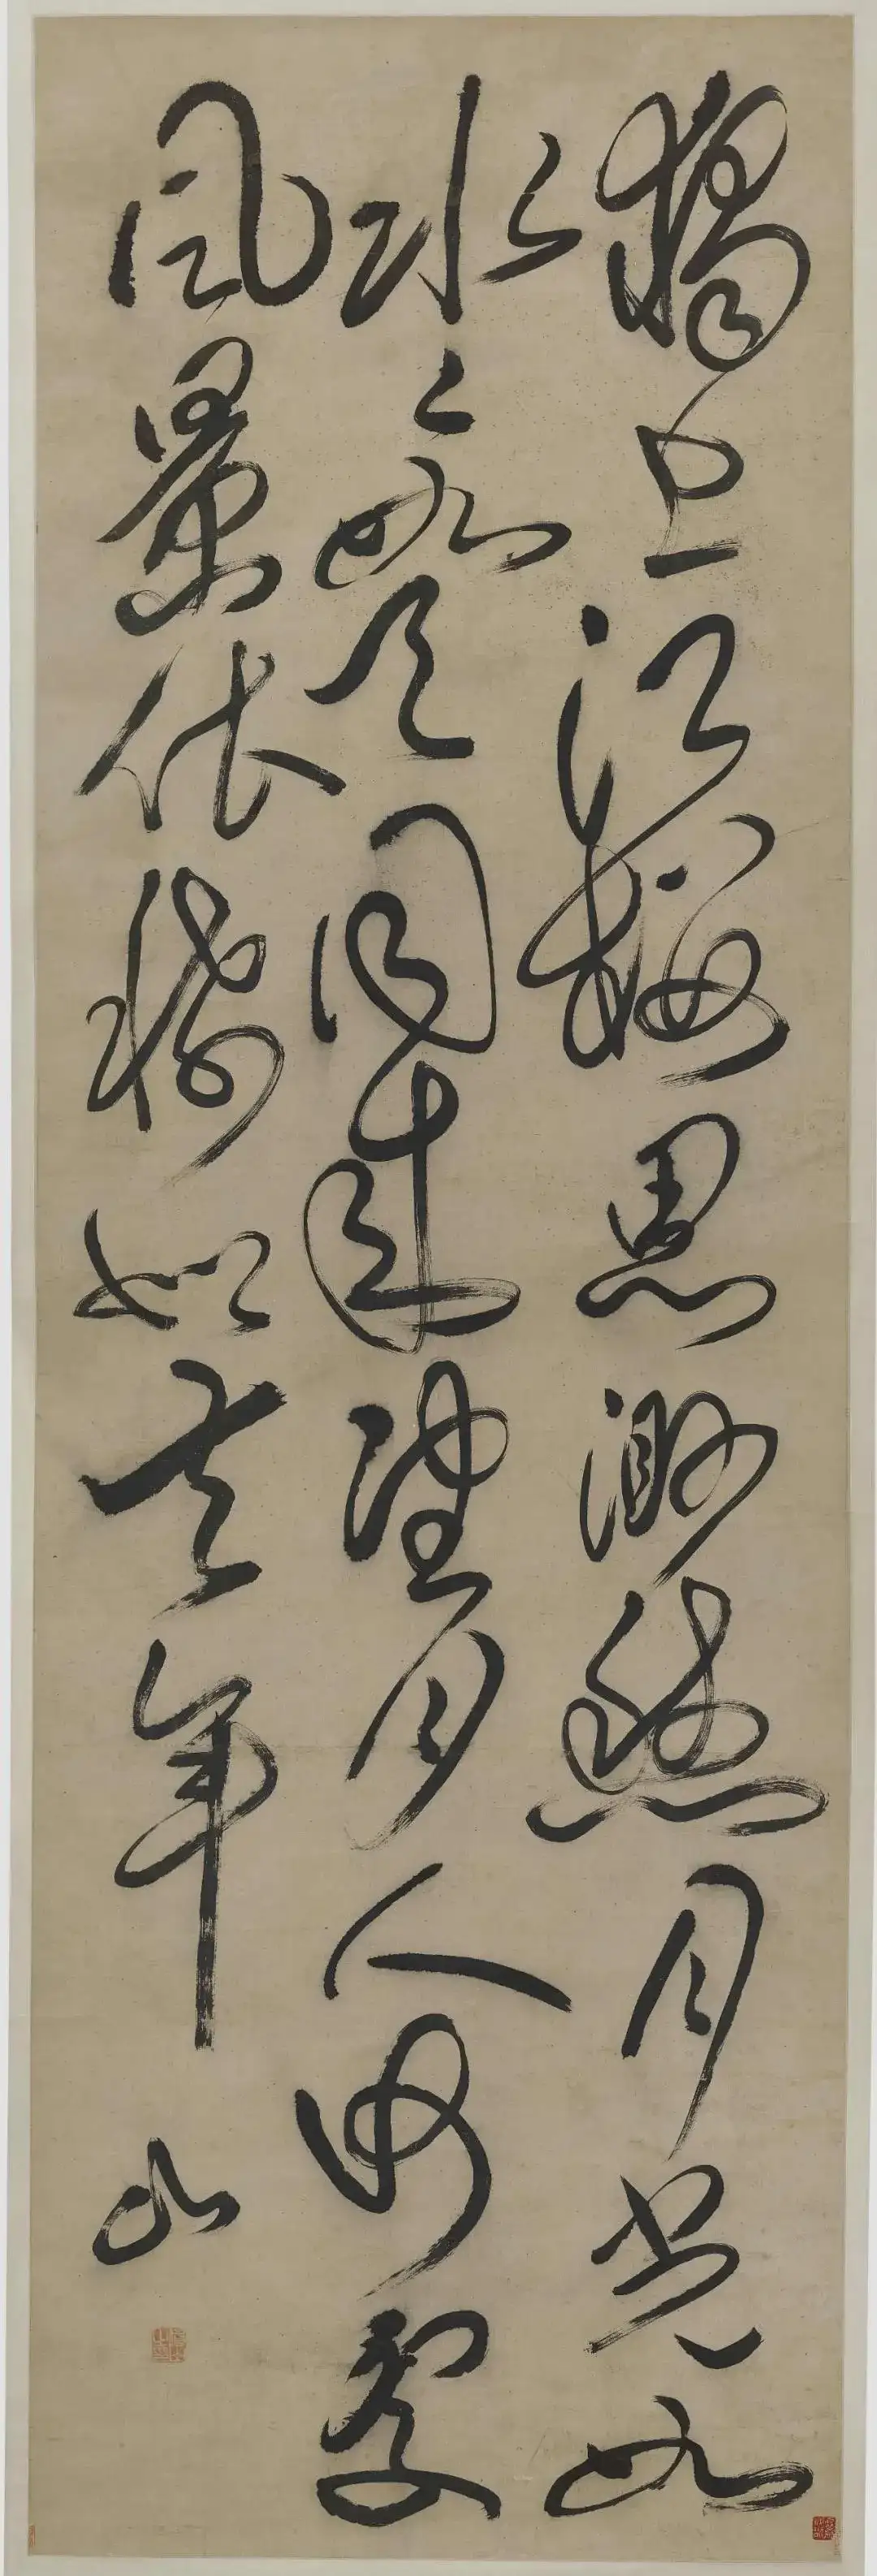 獨上江樓思渺然月光如
水〻如天同來望月人何處
風景依稀似去年 山